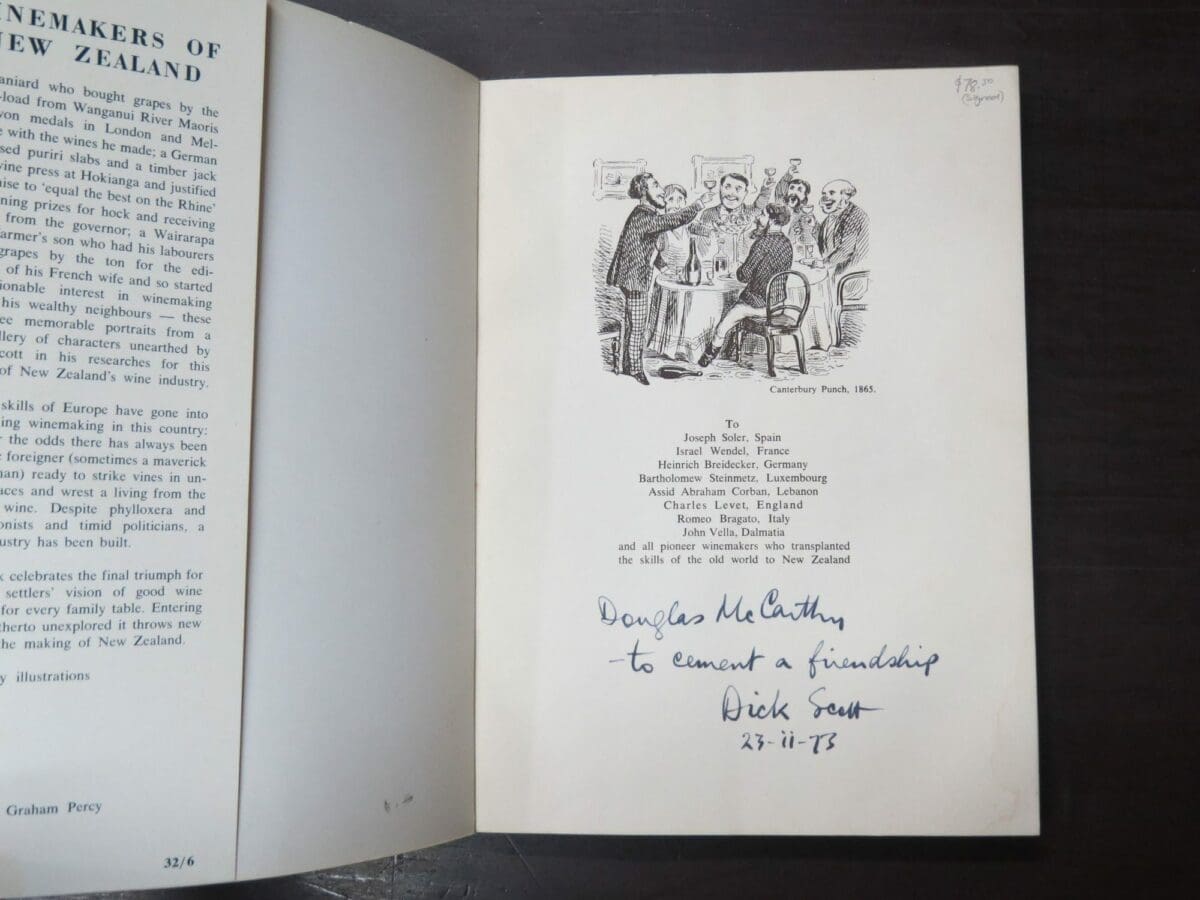 INEMAKERS OF
NEW ZEALAND
aniard who bought grapes by the
-load from Wanganui River Maoris
von medals in London and Mel-
e with the wines he made; a German
sed puriri slabs and a timber jack
vine press at Hokianga and justified
ise to ‘equal the best on the Rhine’
ning prizes for hock and receiving
from the governor; a Wairarapa
armer's son who had his labourers
grapes by the ton for the edi-
of his French wife and so started
ionable interest in winemaking
his wealthy neighbours — these
ee memorable portraits from a
llery of characters unearthed by
cott in his researches for this
of New Zealand's wine industry.
skills of Europe have gone into
ing winemaking in this country:
r the odds there has always been
foreigner (sometimes a maverick
man) ready to strike vines in un-
aces and wrest a living from the
wine. Despite phylloxera and
onists and timid politicians, a
ustry has been built.
k celebrates the final triumph for
settlers' vision of good wine
for every family table. Entering
therto unexplored it throws new
the making of New Zealand.
y illustrations
Graham Percy
32/6
$78.50
(Signed)
Canterbury Punch, 1865.
To
Joseph Soler, Spain
Israel Wendel, France
Heinrich Breidecker, Germany
Bartholomew Steinmetz, Luxembourg
Assid Abraham Corban, Lebanon
Charles Levet, England
Romeo Bragato, Italy
John Vella, Dalmatia
and all pioneer winemakers who transplanted
the skills of the old world to New Zealand
Douglas McCarthy
- to cement a firendship
Dick Scott
23-ii-73